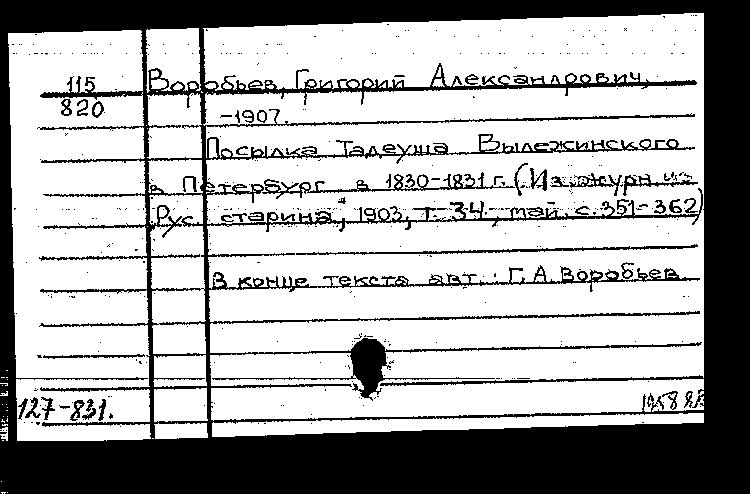 115 Воробьев, Григорий Александрович,
820
-1907.
Посылка Тадеуша Вылежинского
в Петербург в 1830-1831 г. (Из журн.
"Рус. старина", 1903, т. 34, май, с. 351-362)
В конце текста авт.: Г.А. Воробьев.
127-831.